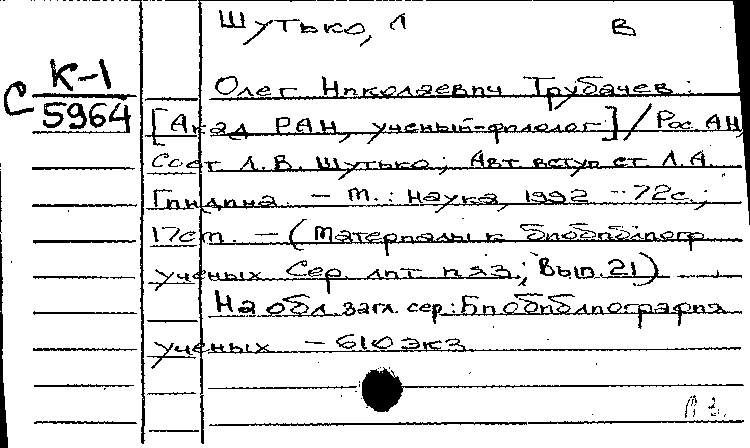 Шутько, Л В
С К-1
5964
Олег Николаевич Трубачев:
[Акад РАН, ученый-филолог] / Рос АН,
Сост Л.В. Шутько; Авт вступ ст Л.А.
Гиндина. – М.: Наука, 1992 – 72с.;
17см. – (Материалы к биобиблиогр
ученых Сер лит и яз.; Вып.21)
На обл загл. сер: Биобиблиография
ученых – 610 экз